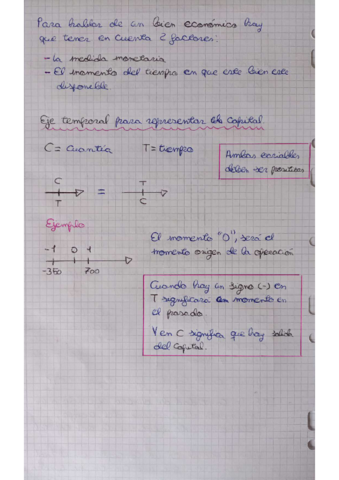 Para hablar de un bien económico hay
que tener en cuenta 2 factores:
- La medida monetaria
- El momento del tiempo en que este bien este
disponible
Eje temporal para representar el capital
C = Cuantía
T = tiempo
Ambas variables
deben ser positivas
C
T
=
T
C
Ejemplo
-1 0 1
-350 700
El momento "0", será el
momento origen de la operación
Cuando hay un signo (-) en
T significará un momento en
el pasado.
Y en C significa que hay salida
del capital.